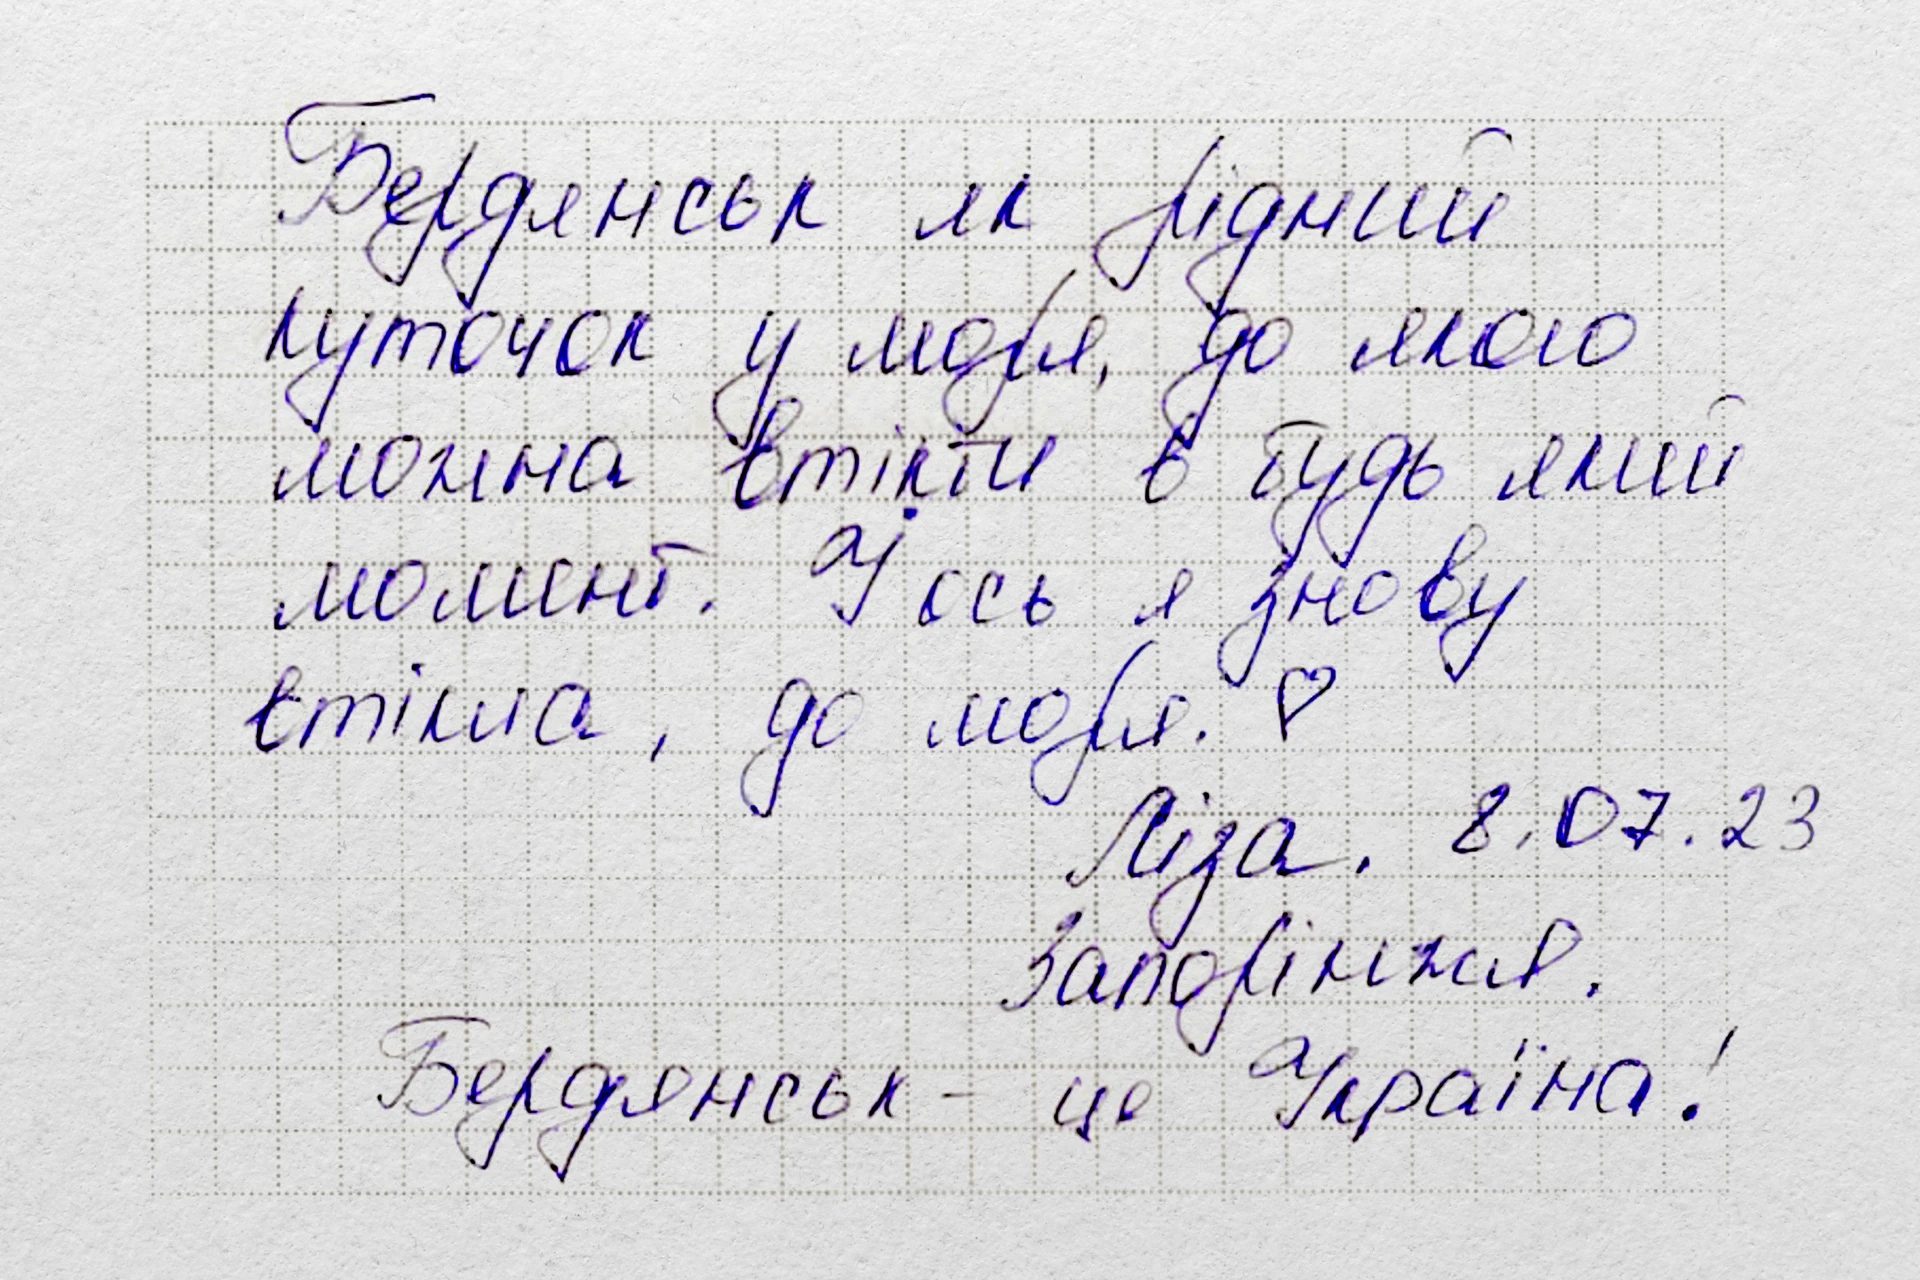 Бердянськ як рідний
куточок у моря, до якого
можна втікти в будь який
момент. І ось я знову
втікла, до моря. ♡
Ліза. 8.07.23
Запоріжжя.
Бердянськ - це Україна!